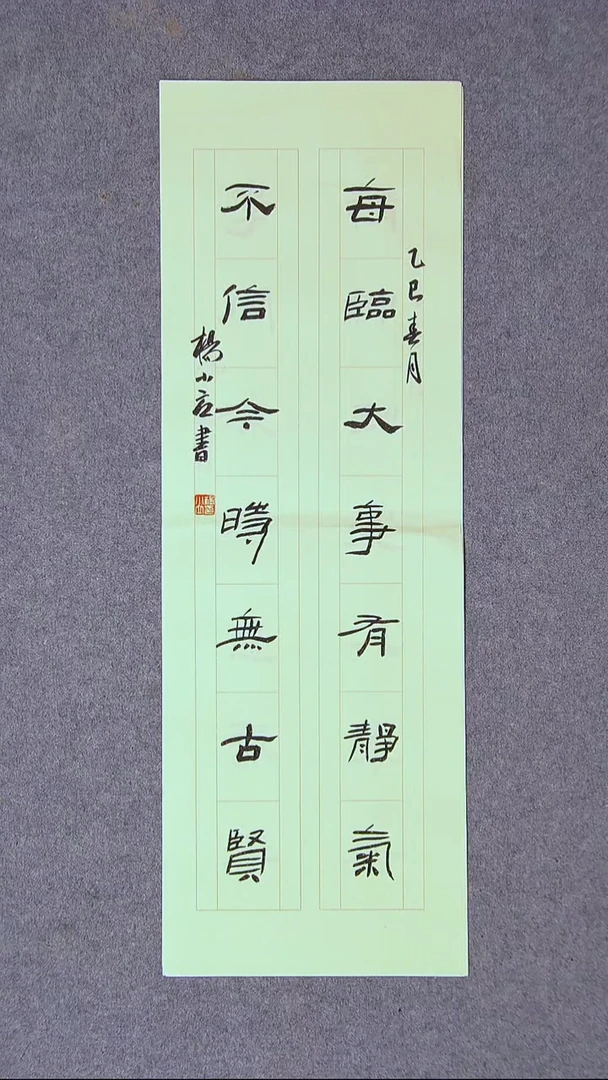 乙巳春月
每臨大事有靜氣
不信今時無古賢
楊小言書